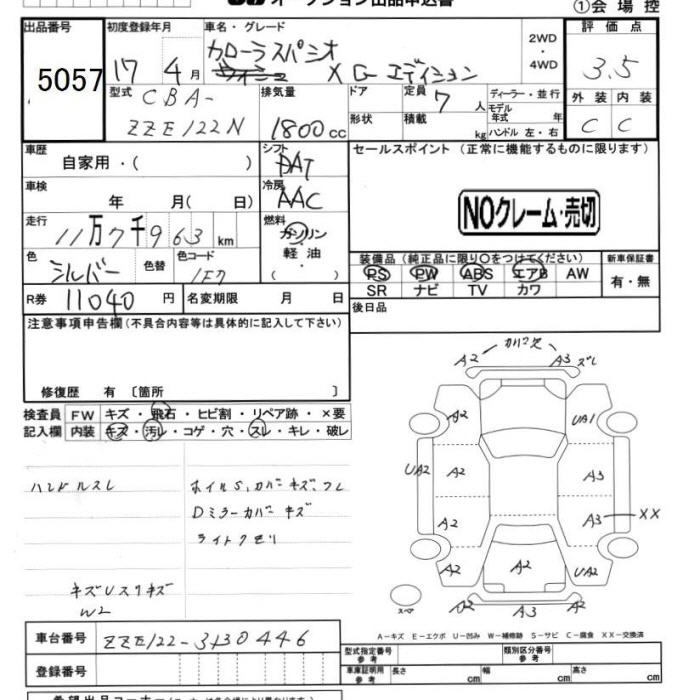 オークション出品申込書
①会場控
出品番号 初度登録年月 車名・グレード 評価点
5057 17 4月 カローラスパシオ X G エディション 2WD・4WD 3.5
型式 CBA- ZZE122N 排気量 1800cc ドア 形状 定員 7人 積載 kg ディーラー・並行 モデル年式 年 ハンドル 左・右 外装 内装
C C
車歴 自家用・( ) シフト DAT セールスポイント (正常に機能するものに限ります)
車検 年 月( 日) 冷房 AAC
NOクレーム・売切
走行 11万7千963km 燃料 ガソリン・軽油・( )
色 シルバー 色替 色コード 1F7 装備品 (純正品に限り○をつけてください) 新車保証書
PS PW ABS エアB AW 有・無
SR ナビ TV カワ
R券 11040円 名変期限 月 日 後日品
注意事項申告欄(不具合内容等は具体的に記入して下さい)
修復歴 有 〔箇所 〕
検査員 FW キズ・飛石・ヒビ割・リペア跡・×要
記入欄 内装 キズ・汚レ・コゲ・穴・スレ・キレ・破レ
ハンドルスレ
ホイルS,カバーキズ,フレ
Dミラーカバーキズ
ライトクモリ
キズUスリキズ
W2
A2 カバー欠 A3 ズレ
A2 UA1
UA2 A2 A3
A2 A3 XX
A2 A2 UA2
スペア A2 A3 A2
A-キズ E-エクボ U-凹み W-補修跡 S-サビ C-腐食 XX-交換済
車台番号 ZZE122-3130446
型式指定番号 参考 類別区分番号 参考
登録番号
車庫証明用 参考 長さ cm 幅 cm 高さ cm